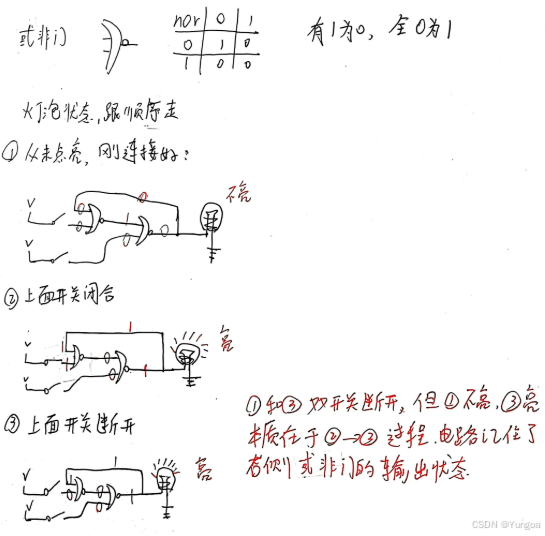 或非门
nor 0 1
0 1 0
1 0 0
有1为0，全0为1
灯泡状态，跟顺序走
① 从未点亮，刚连接好：
V
V
0
0
1
0
0
不亮
② 上面开关闭合
V
V
1
1
0
0
1
亮
③ 上面开关断开
V
V
1
0
0
0
1
亮
①和③双开关断开，但①不亮，③亮
本质在于②→③过程，电路记住了
右侧或非门的输出状态
CSDN @Yurgoa